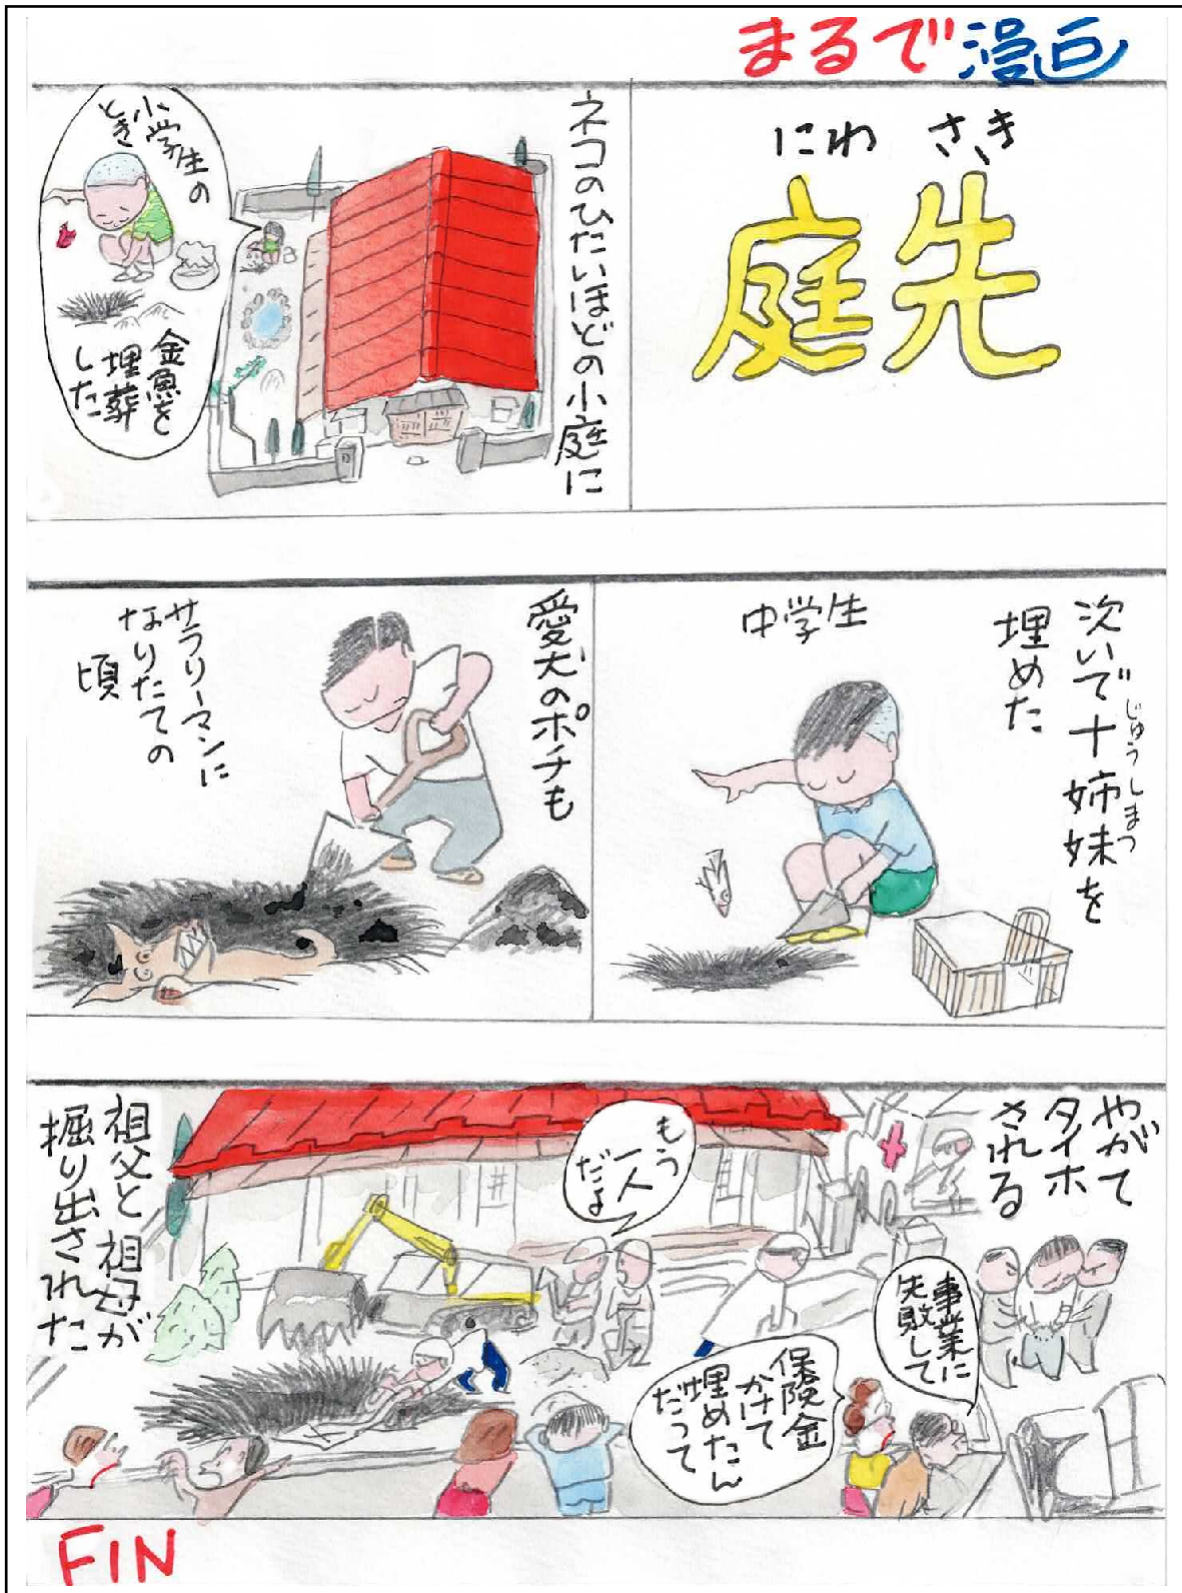 まるで漫画
にわ さき
庭先
ネコのひたいほどの小庭に
小学生の
とき
金魚を
埋葬
した
次いで十姉妹を
じゅうしまつ
埋めた
中学生
愛犬のポチも
サラリーマンに
なりたての
頃
やがて
タイホ
される
事業に
失敗して
保険金
かけて
埋めたん
だって
もう
一人
だよ
祖父と祖母が
掘り出された
FIN